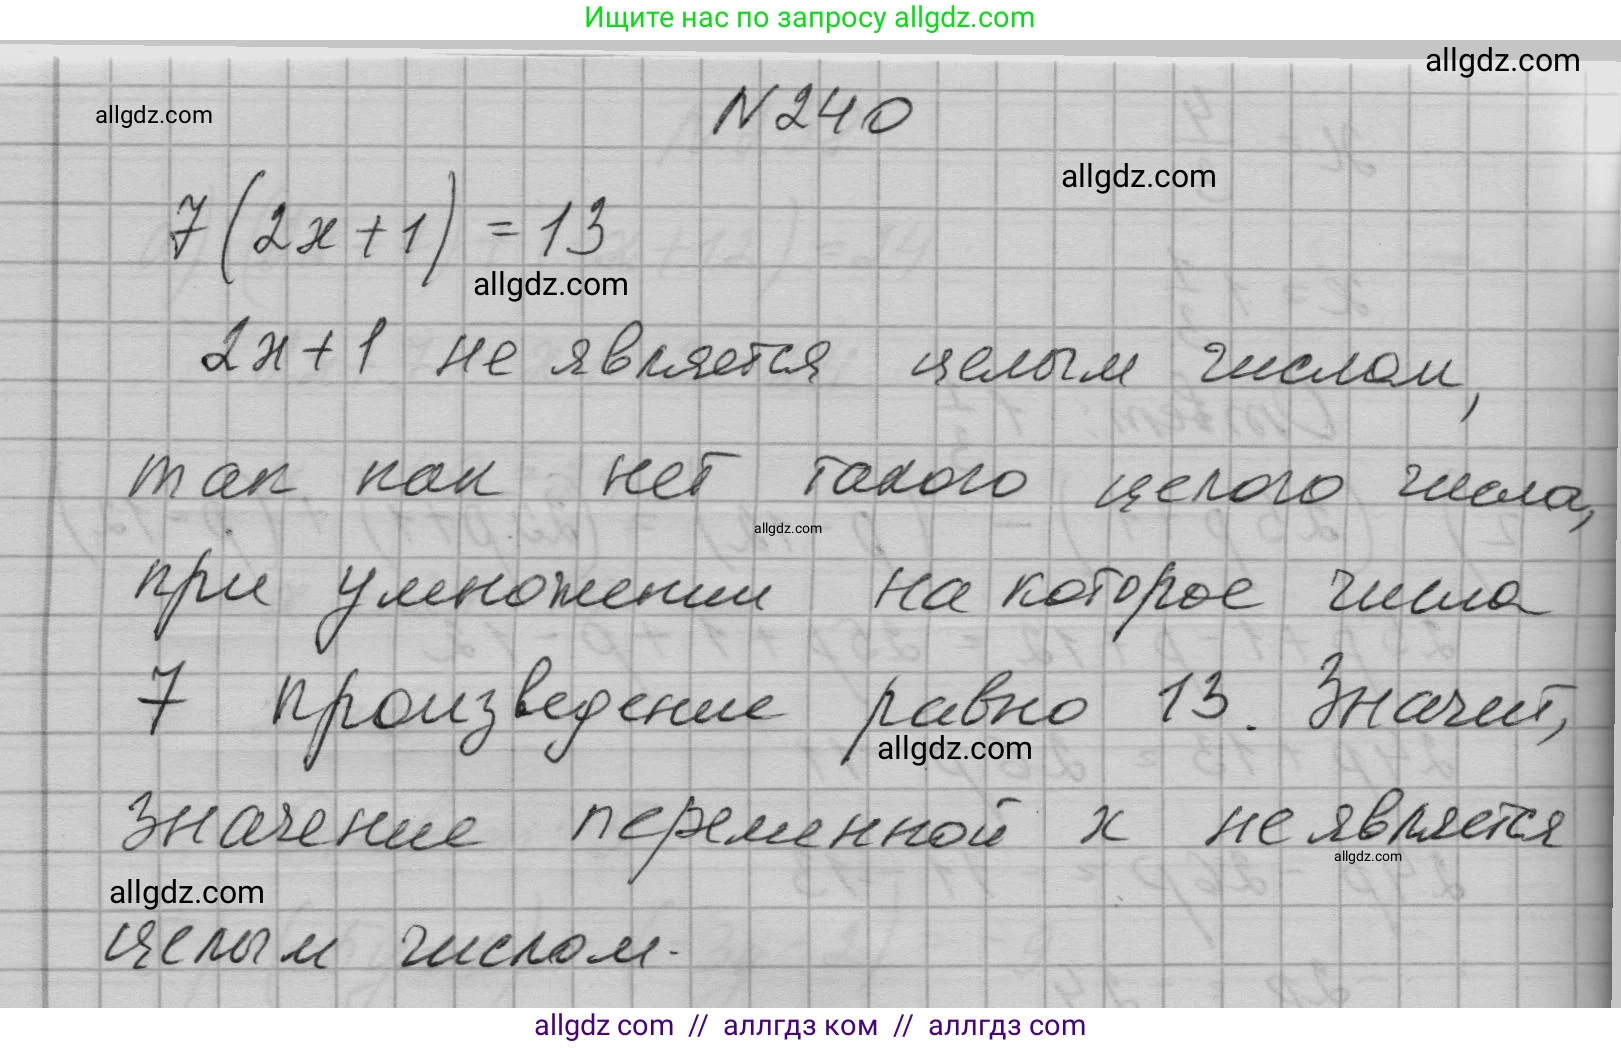 Ищите нас по запросу allgdz.com
allgdz.com
allgdz.com
N240
allgdz.com
7(2x+1) = 13
allgdz.com
2x+1 не является целым числом,
так как нет такого целого числа,
allgdz.com
при умножении на которое числа
7 произведение равно 13. Значит,
allgdz.com
значение переменной x не является
allgdz.com
allgdz.com
целым числом.
allgdz com // аллгдз ком // аллгдз com